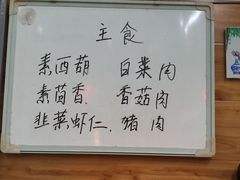 主食
素西葫 白菜肉
素茴香. 香菇肉
韭菜虾仁. 猪肉